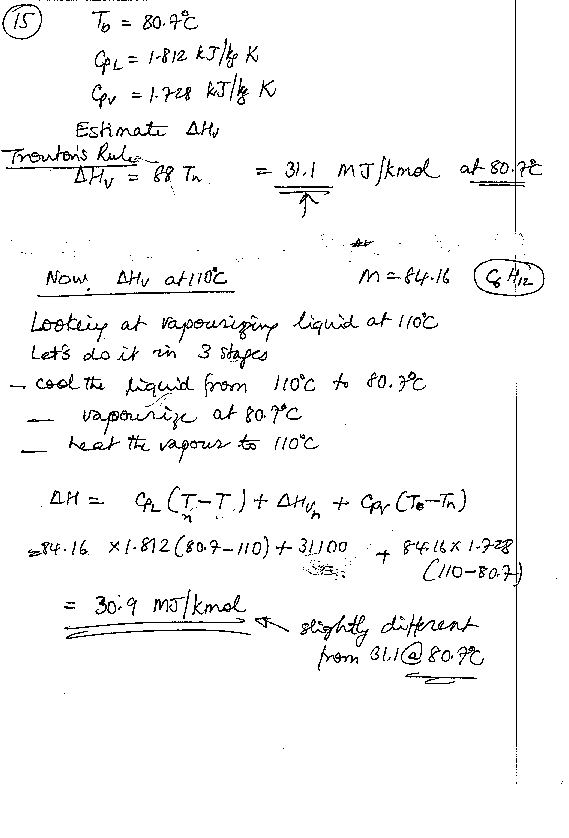 15
T_b = 80.7°C
C_PL = 1.812 kJ/kg K
C_PV = 1.728 kJ/kg K
Estimate ΔH_v
Trouton's Rule
ΔH_v = 88 T_n = 31.1 MJ/kmol at 80.7°C
Now, ΔH_v at 110°C M = 84.16 C6 H12
Looking at vapourizing liquid at 110°C
Let's do it in 3 stages
- cool the liquid from 110°C to 80.7°C
- vapourize at 80.7°C
- heat the vapour to 110°C
ΔH = C_PL (T_n - T) + ΔH_vn + C_PV (T_0 - T_n)
= 84.16 × 1.812 (80.7 - 110) + 31,100 + 84.16 × 1.728
(110 - 80.7)
= 30.9 MJ/kmol
slightly different
from 31.1 @ 80.7°C